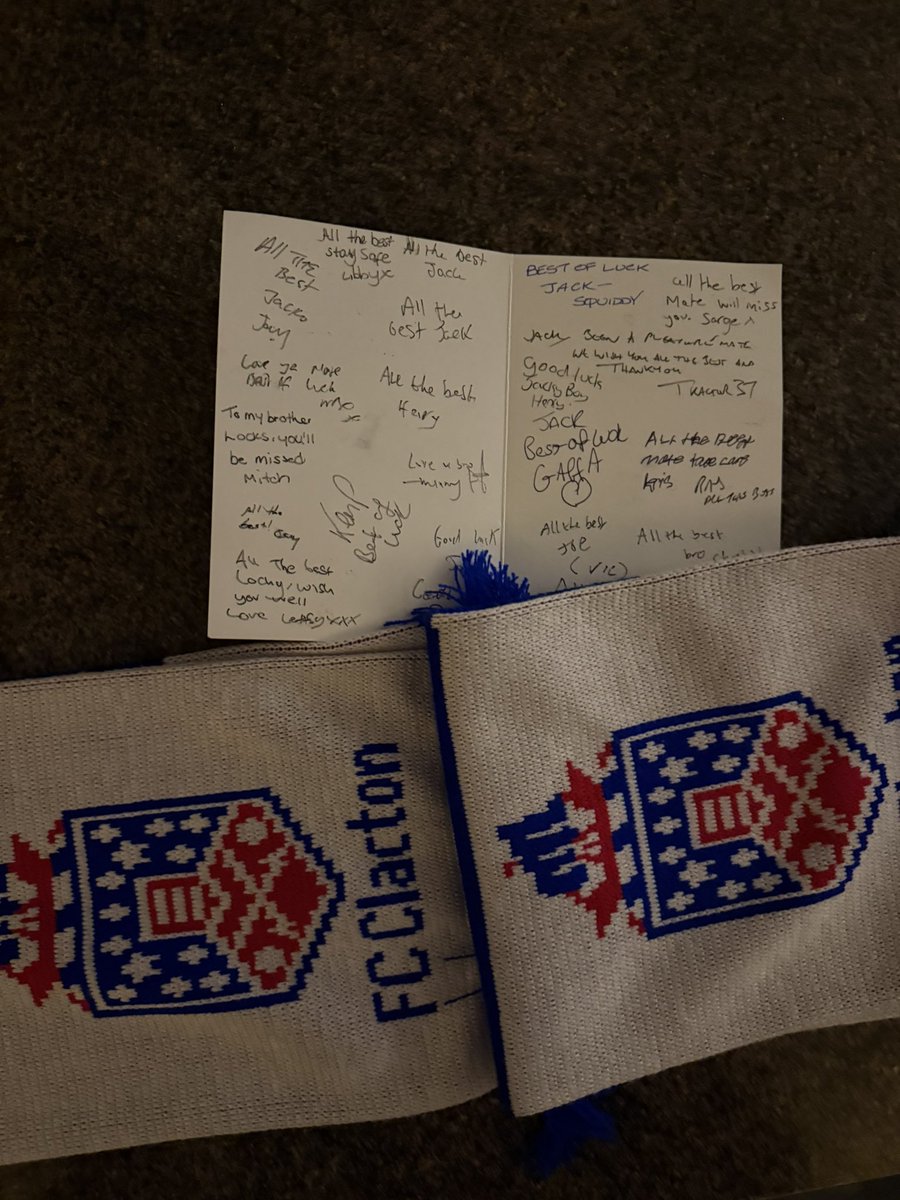 All THE
Best
Jacko
All the best
stay safe
Libby x
All the Best
Jack
All the
best Jack
Love ya Mate
luck
To my brother
Locks, you'll
be missed
Mitch
All the best.
Henry
Love u bro
All the
best!
Best of
Luck
Good luck
All The best
Lochy, wish
you well
Love xxx
BEST OF LUCK
JACK-
SQUIDDY
all the best
Mate will miss
you. Sarge x
JACK, BEEN A PLEASURE MATE
WE WISH YOU ALL THE BEST AND
THANKYOU
TRACTOR 37
Good luck
Jacky Boy
Henry.
JACK
Best of luck
GAFFA
ALL THE BEST
mate take care
All the best
Joe
(VIC)
All the best
bro
FC Clacton